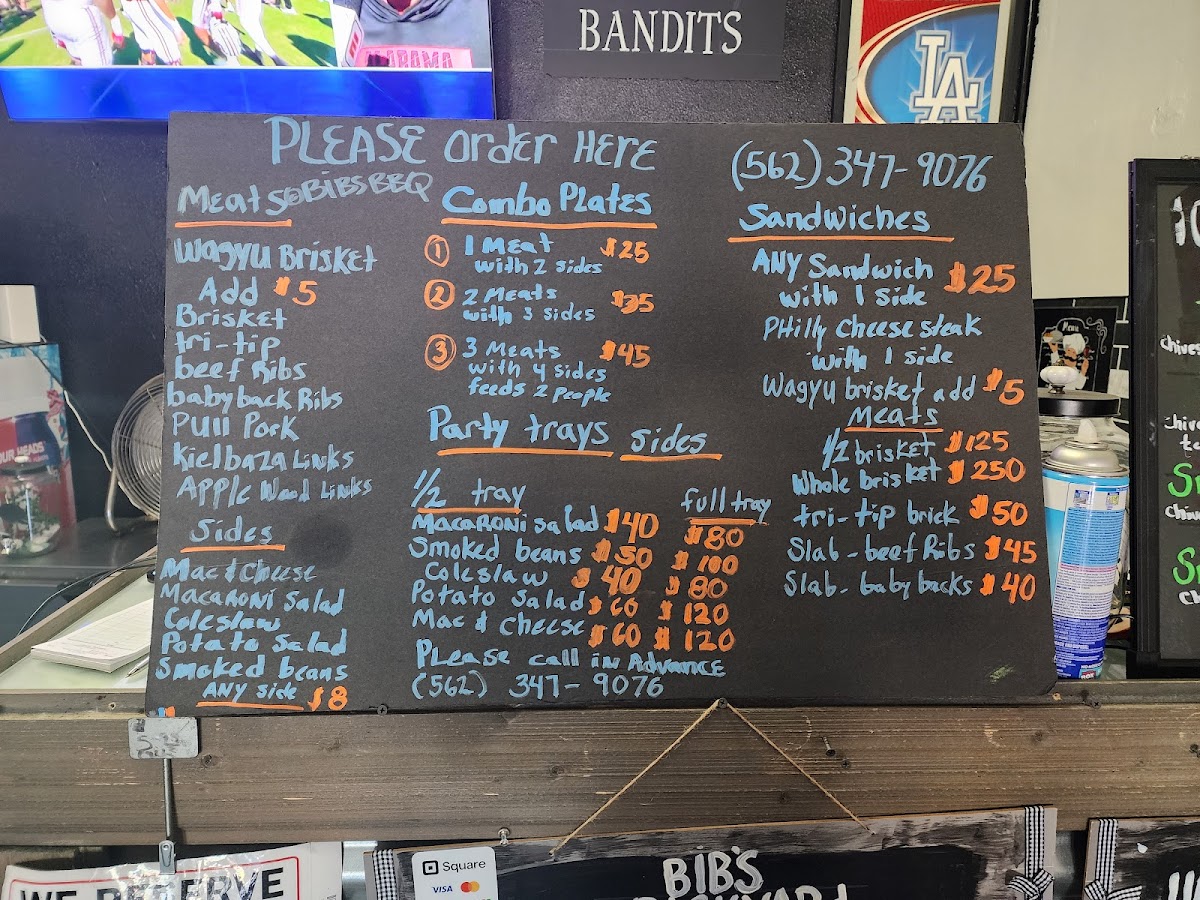 ALABAMA
BANDITS
LA
PLEASE Order HERE
(562) 347-9076
Meats@BiBSBBQ
Wagyu Brisket
Add $5
Brisket
tri-tip
beef Ribs
baby back Ribs
Pull Pork
Kielbaza Links
Apple Wood Links
Sides
Mac & Cheese
Macaroni Salad
Coleslaw
Potato Salad
Smoked beans
ANY side $8
Combo Plates
1 1 Meat $25
with 2 sides
2 2 Meats $35
with 3 sides
3 3 Meats $45
with 4 sides
feeds 2 people
Party trays sides
1/2 tray full tray
Macaroni Salad $40 $80
Smoked beans $50 $100
Coleslaw $40 $80
Potato Salad $60 $120
Mac & Cheese $60 $120
Please call in Advance
(562) 347-9076
Sandwiches
ANY Sandwich $25
with 1 side
PHilly Cheese steak
with 1 side
Wagyu brisket add $5
Meats
1/2 brisket $125
Whole brisket $250
tri-tip brick $50
Slab-beef Ribs $45
Slab-baby backs $40
Menu
WE RESERVE
Square
VISA
BIB'S